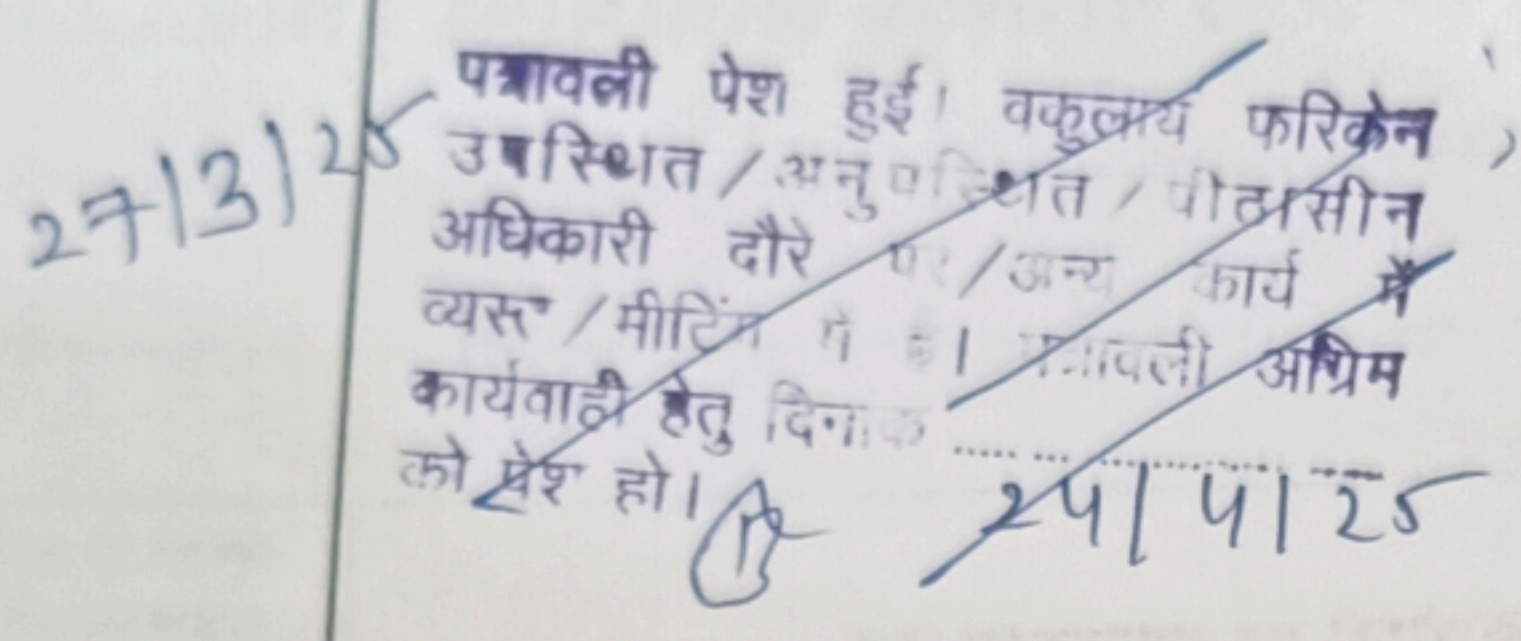 27/3/25
पत्रावली पेश हुई। वकुलाय फरिकेन
उपस्थित / अनुपस्थित / पीठासीन
अधिकारी दौरे पर / अन्य कार्य में
व्यस्त / मीटिंग में है। पत्रावली अग्रिम
कार्यवाही हेतु दिनांक ..................
को पेश हो।
24/4/25